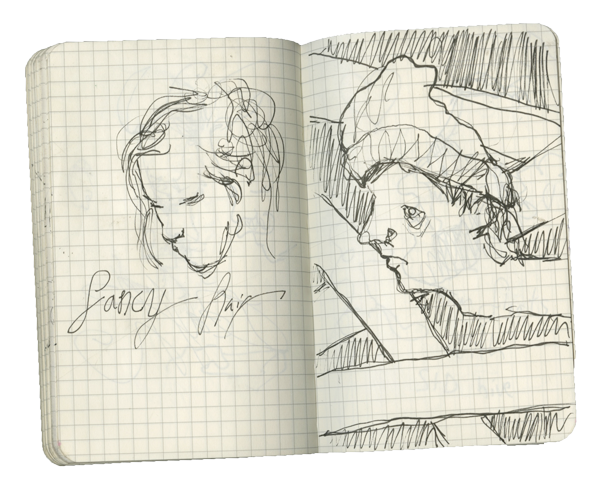 fancy hair